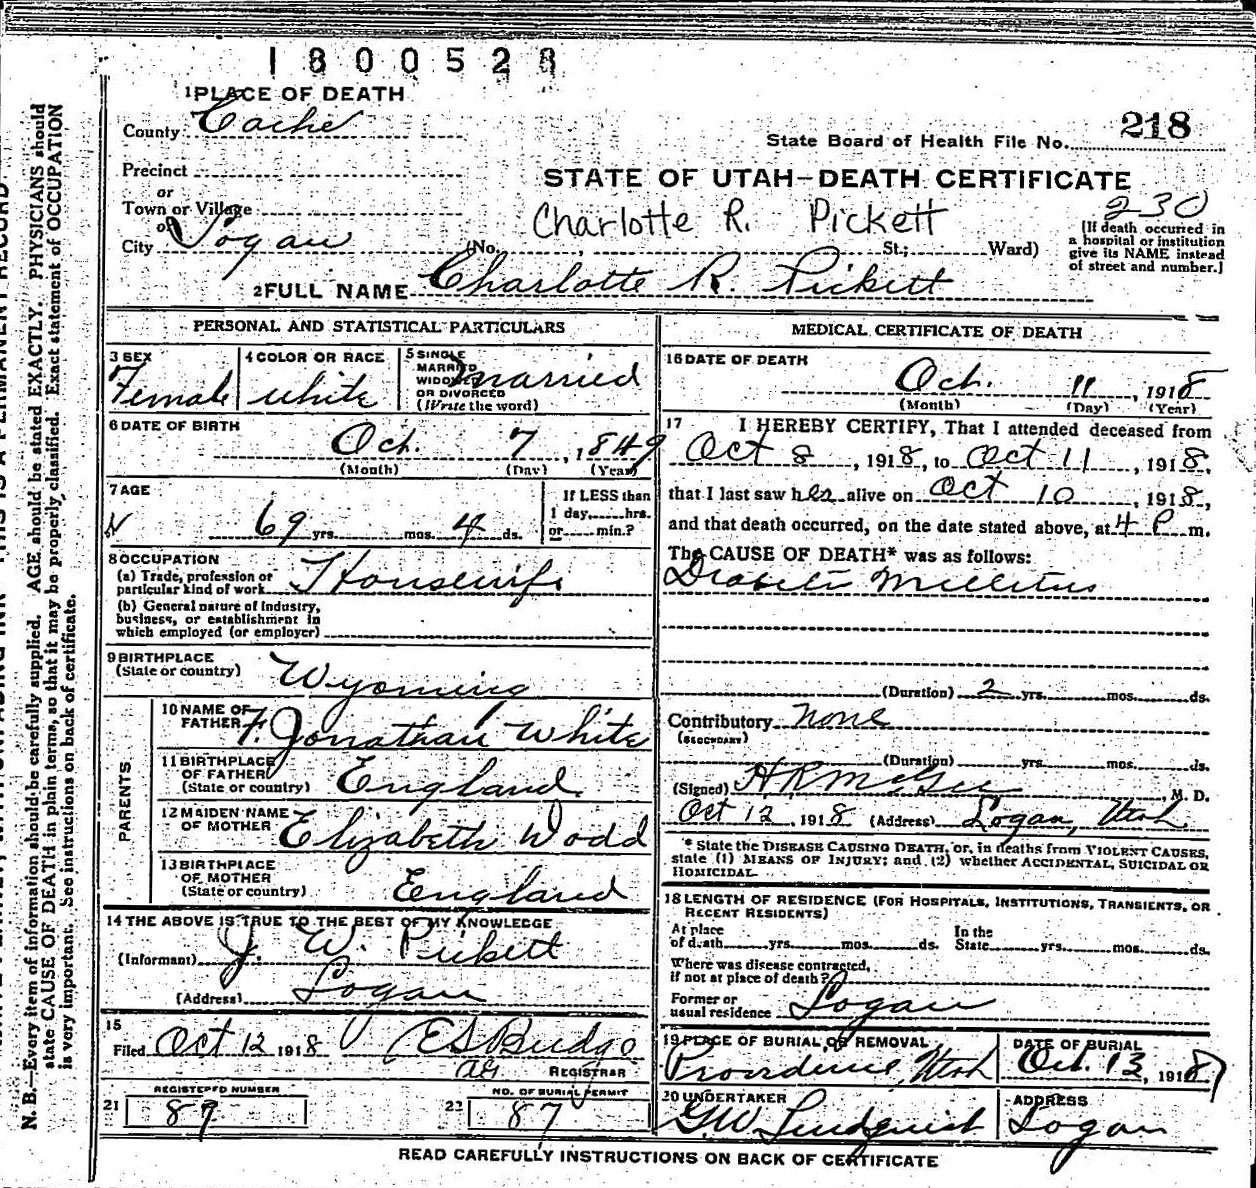 1800528
1 PLACE OF DEATH
County Cache
218
State Board of Health File No.
Precinct
or
Town or Village
or
City Logan
STATE OF UTAH—DEATH CERTIFICATE
Charlotte R. Pickett
230
(No. St.; Ward)
[If death occurred in
a hospital or institution
give its NAME instead
of street and number.]
2 FULL NAME Charlotte R. Pickett
PERSONAL AND STATISTICAL PARTICULARS
3 SEX
Female
4 COLOR OR RACE
white
5 SINGLE
MARRIED
WIDOWED
OR DIVORCED
(Write the word)
married
6 DATE OF BIRTH
Oct. 7, 1849
(Month) (Day) (Year)
7 AGE
69 yrs. mos. 4 ds.
If LESS than
1 day, hrs.
or min.?
8 OCCUPATION
(a) Trade, profession or
particular kind of work Housewife
(b) General nature of industry,
business, or establishment in
which employed (or employer)
9 BIRTHPLACE
(State or country) Wyoming
PARENTS
10 NAME OF
FATHER F. Jonathan White
11 BIRTHPLACE
OF FATHER
(State or country) England
12 MAIDEN NAME
OF MOTHER Elizabeth Wodd
13 BIRTHPLACE
OF MOTHER
(State or country) England
14 THE ABOVE IS TRUE TO THE BEST OF MY KNOWLEDGE
(Informant) J. W. Pickett
(Address) Logan
15
Filed Oct 12 1918 E S Budge
REGISTRAR
REGISTERED NUMBER
21 87
NO. OF BURIAL PERMIT
22 87
MEDICAL CERTIFICATE OF DEATH
16 DATE OF DEATH
Oct. 11, 1918
(Month) (Day) (Year)
17 I HEREBY CERTIFY, That I attended deceased from
Oct 8, 1918, to Oct 11, 1918,
that I last saw her alive on Oct 10, 1918,
and that death occurred, on the date stated above, at 4 P m.
The CAUSE OF DEATH* was as follows:
Diabetis Millitus
(Duration) 2 yrs. mos. ds.
Contributory none
(SECONDARY)
(Duration) yrs. mos. ds.
(Signed) H R McGee, M. D.
Oct 12, 1918 (Address) Logan, Utah
* State the DISEASE CAUSING DEATH, or, in deaths from VIOLENT CAUSES,
state (1) MEANS OF INJURY; and (2) whether ACCIDENTAL, SUICIDAL OR
HOMICIDAL.
18 LENGTH OF RESIDENCE (FOR HOSPITALS, INSTITUTIONS, TRANSIENTS, OR
RECENT RESIDENTS)
At place
of death yrs. mos. ds.
In the
State yrs. mos. ds.
Where was disease contracted,
if not at place of death?
Former or
usual residence Logan
19 PLACE OF BURIAL OR REMOVAL
Providence, Utah
DATE OF BURIAL
Oct. 13, 1918
20 UNDERTAKER
G W Lindquist
ADDRESS
Logan
READ CAREFULLY INSTRUCTIONS ON BACK OF CERTIFICATE
N. B.—Every item of information should be carefully supplied. AGE should be stated EXACTLY. PHYSICIANS should
state CAUSE OF DEATH in plain terms, so that it may be properly classified. Exact statement of OCCUPATION
is very important. See instructions on back of certificate.